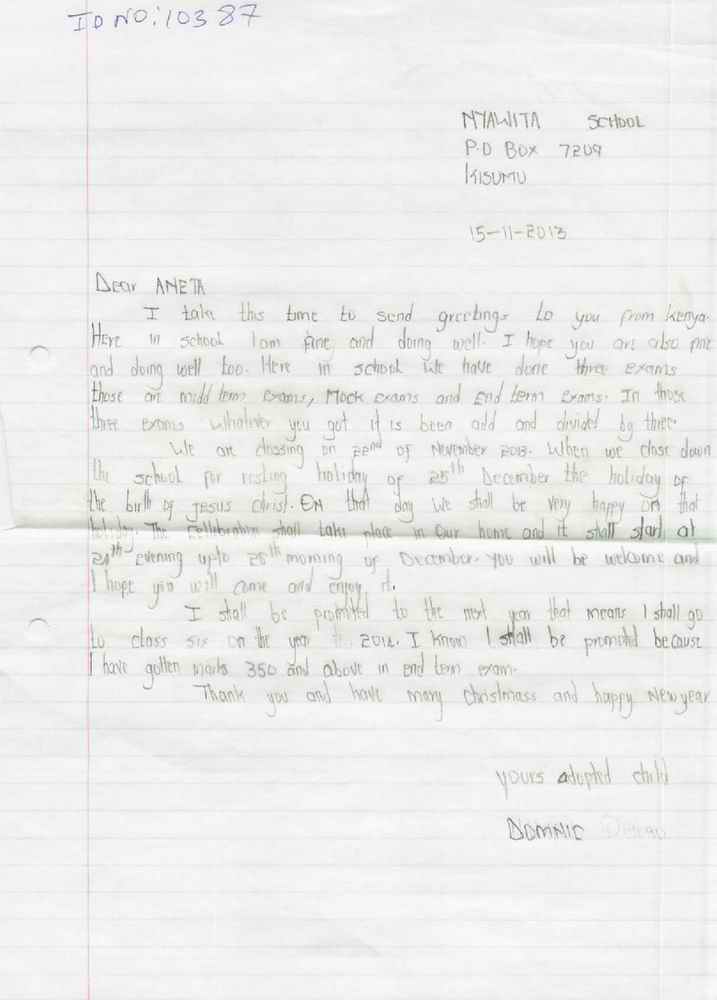 ID NO: 10387
NYAWITA SCHOOL
P.O BOX 7209
KISUMU
15-11-2013
Dear ANETA
I take this time to send greetings to you from kenya.
HERE in school I am fine and doing well. I hope you are also fine
and doing well too. Here in school we have done three exams
those are midd term exams, Mock Exams and End term Exams. In those
three exams whatever you got it is been add and divided by three.
We are clossing on 22nd of November 2013. When we close down
the school for resting holiday of 25th December the holiday of
the birth of JESUS christ. On that day we shall be very happy on that
holiday. The cellebration shall take place in our home and it shall start at
24th Evening upto 25th morning of December. you will be welcome and
I hope you will come and enjoy it.
I shall be promoted to the next year that means I shall go
to class six on the year 2014. I know I shall be promoted because
I have gotten marks 350 and above in end term exam.
Thank you and have marry christmass and happy New year
yours adopted child
DOMNIC